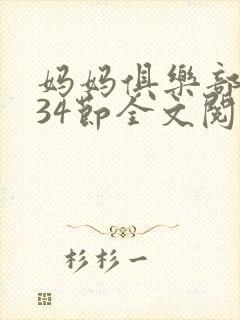 妈妈俱樂部
34節全文閱
杉杉一